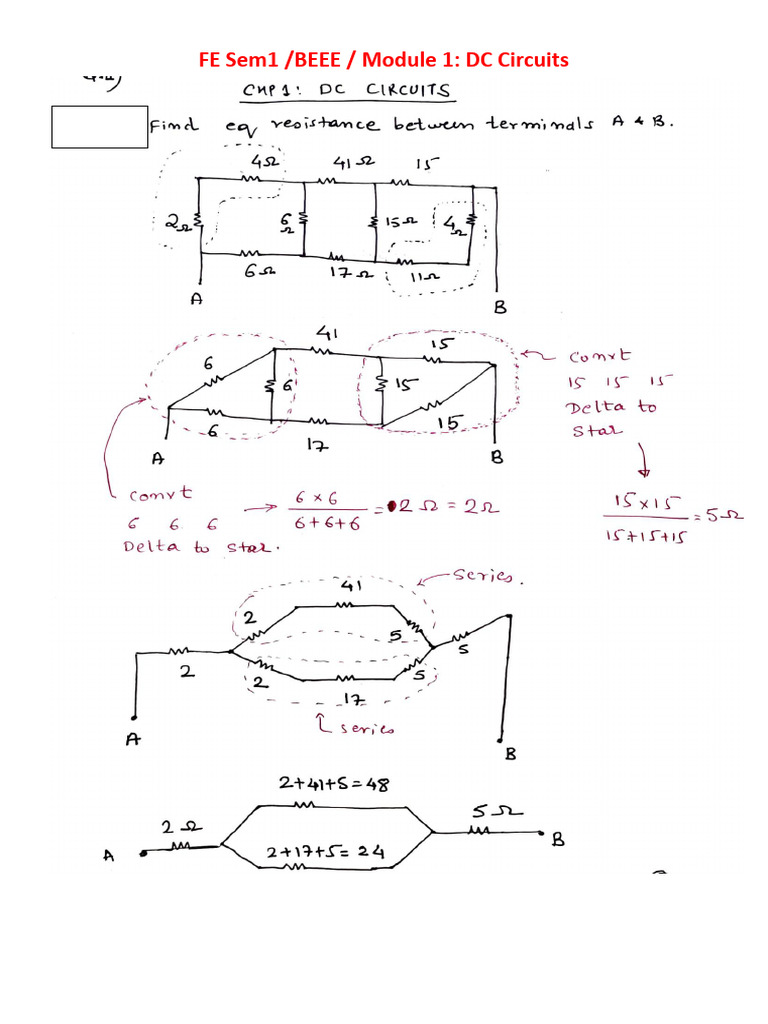 FE Sem1 /BEEE / Module 1: DC Circuits
CHP1: DC CIRCUITS
Find eq resistance between terminals A & B.
4Ω 41Ω 15
2Ω 6Ω 15Ω 4Ω
6Ω 17Ω 11Ω
A B
41 15
6 6 15
6 17 15
A B
Convt
15 15 15
Delta to
Star
Convt
6 6 6
Delta to star.
6×6
6+6+6
= 2Ω = 2Ω
15×15
15+15+15
= 5Ω
series.
41
2 5
2 5
2 5
17
series
A B
2+41+5=48
2Ω 5Ω
2+17+5=24
A B